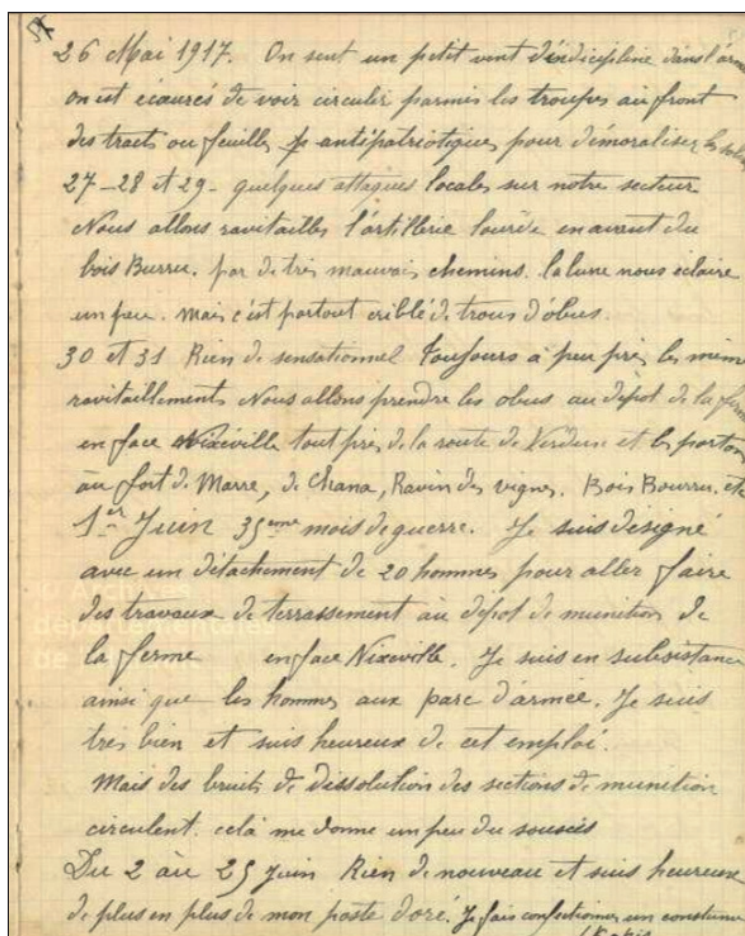 26 Mai 1917. On sent un petit vent d'indicipline dans l'armé
on est écœurés de voir circuler parmis les troupes au front
des tracts ou feuilles antipatriotiques pour démoraliser les
27-28 et 29- quelques attaques locales sur notre secteur.
Nous allons ravitailler l'artillerie lourde en avent du
bois Burru. par de très mauvais chemins. la lune nous éclaire
un peu. mais c'est partout criblé de trous d'obus.
30 et 31 Rien de sensationnel Toujours à peu près les même
ravitaillements Nous allons prendre les obus au dépot de la ferme
en face Nixéville tout près de la route de Verdun et les portons
au fort de Marre, de Chana, Ravin des vignes. Bois Bourru. etc
1er Juin 35ème mois de guerre. Je suis désigné
avec un détachement de 20 hommes pour aller faire
des travaux de terrassement au dépot de munitions de
la ferme en face Nixeville. Je suis en subsistance
ainsi que les hommes aux parc d'armée. Je suis
très bien et suis heureux de cet emploi.
Mais des bruits de dissolution des sections de munition
circulent. celà me donne un peu du soucis
Du 2 au 25 Juin Rien de nouveau et suis heureux
de plus en plus de mon poste doré. Je fais confectionner un costume